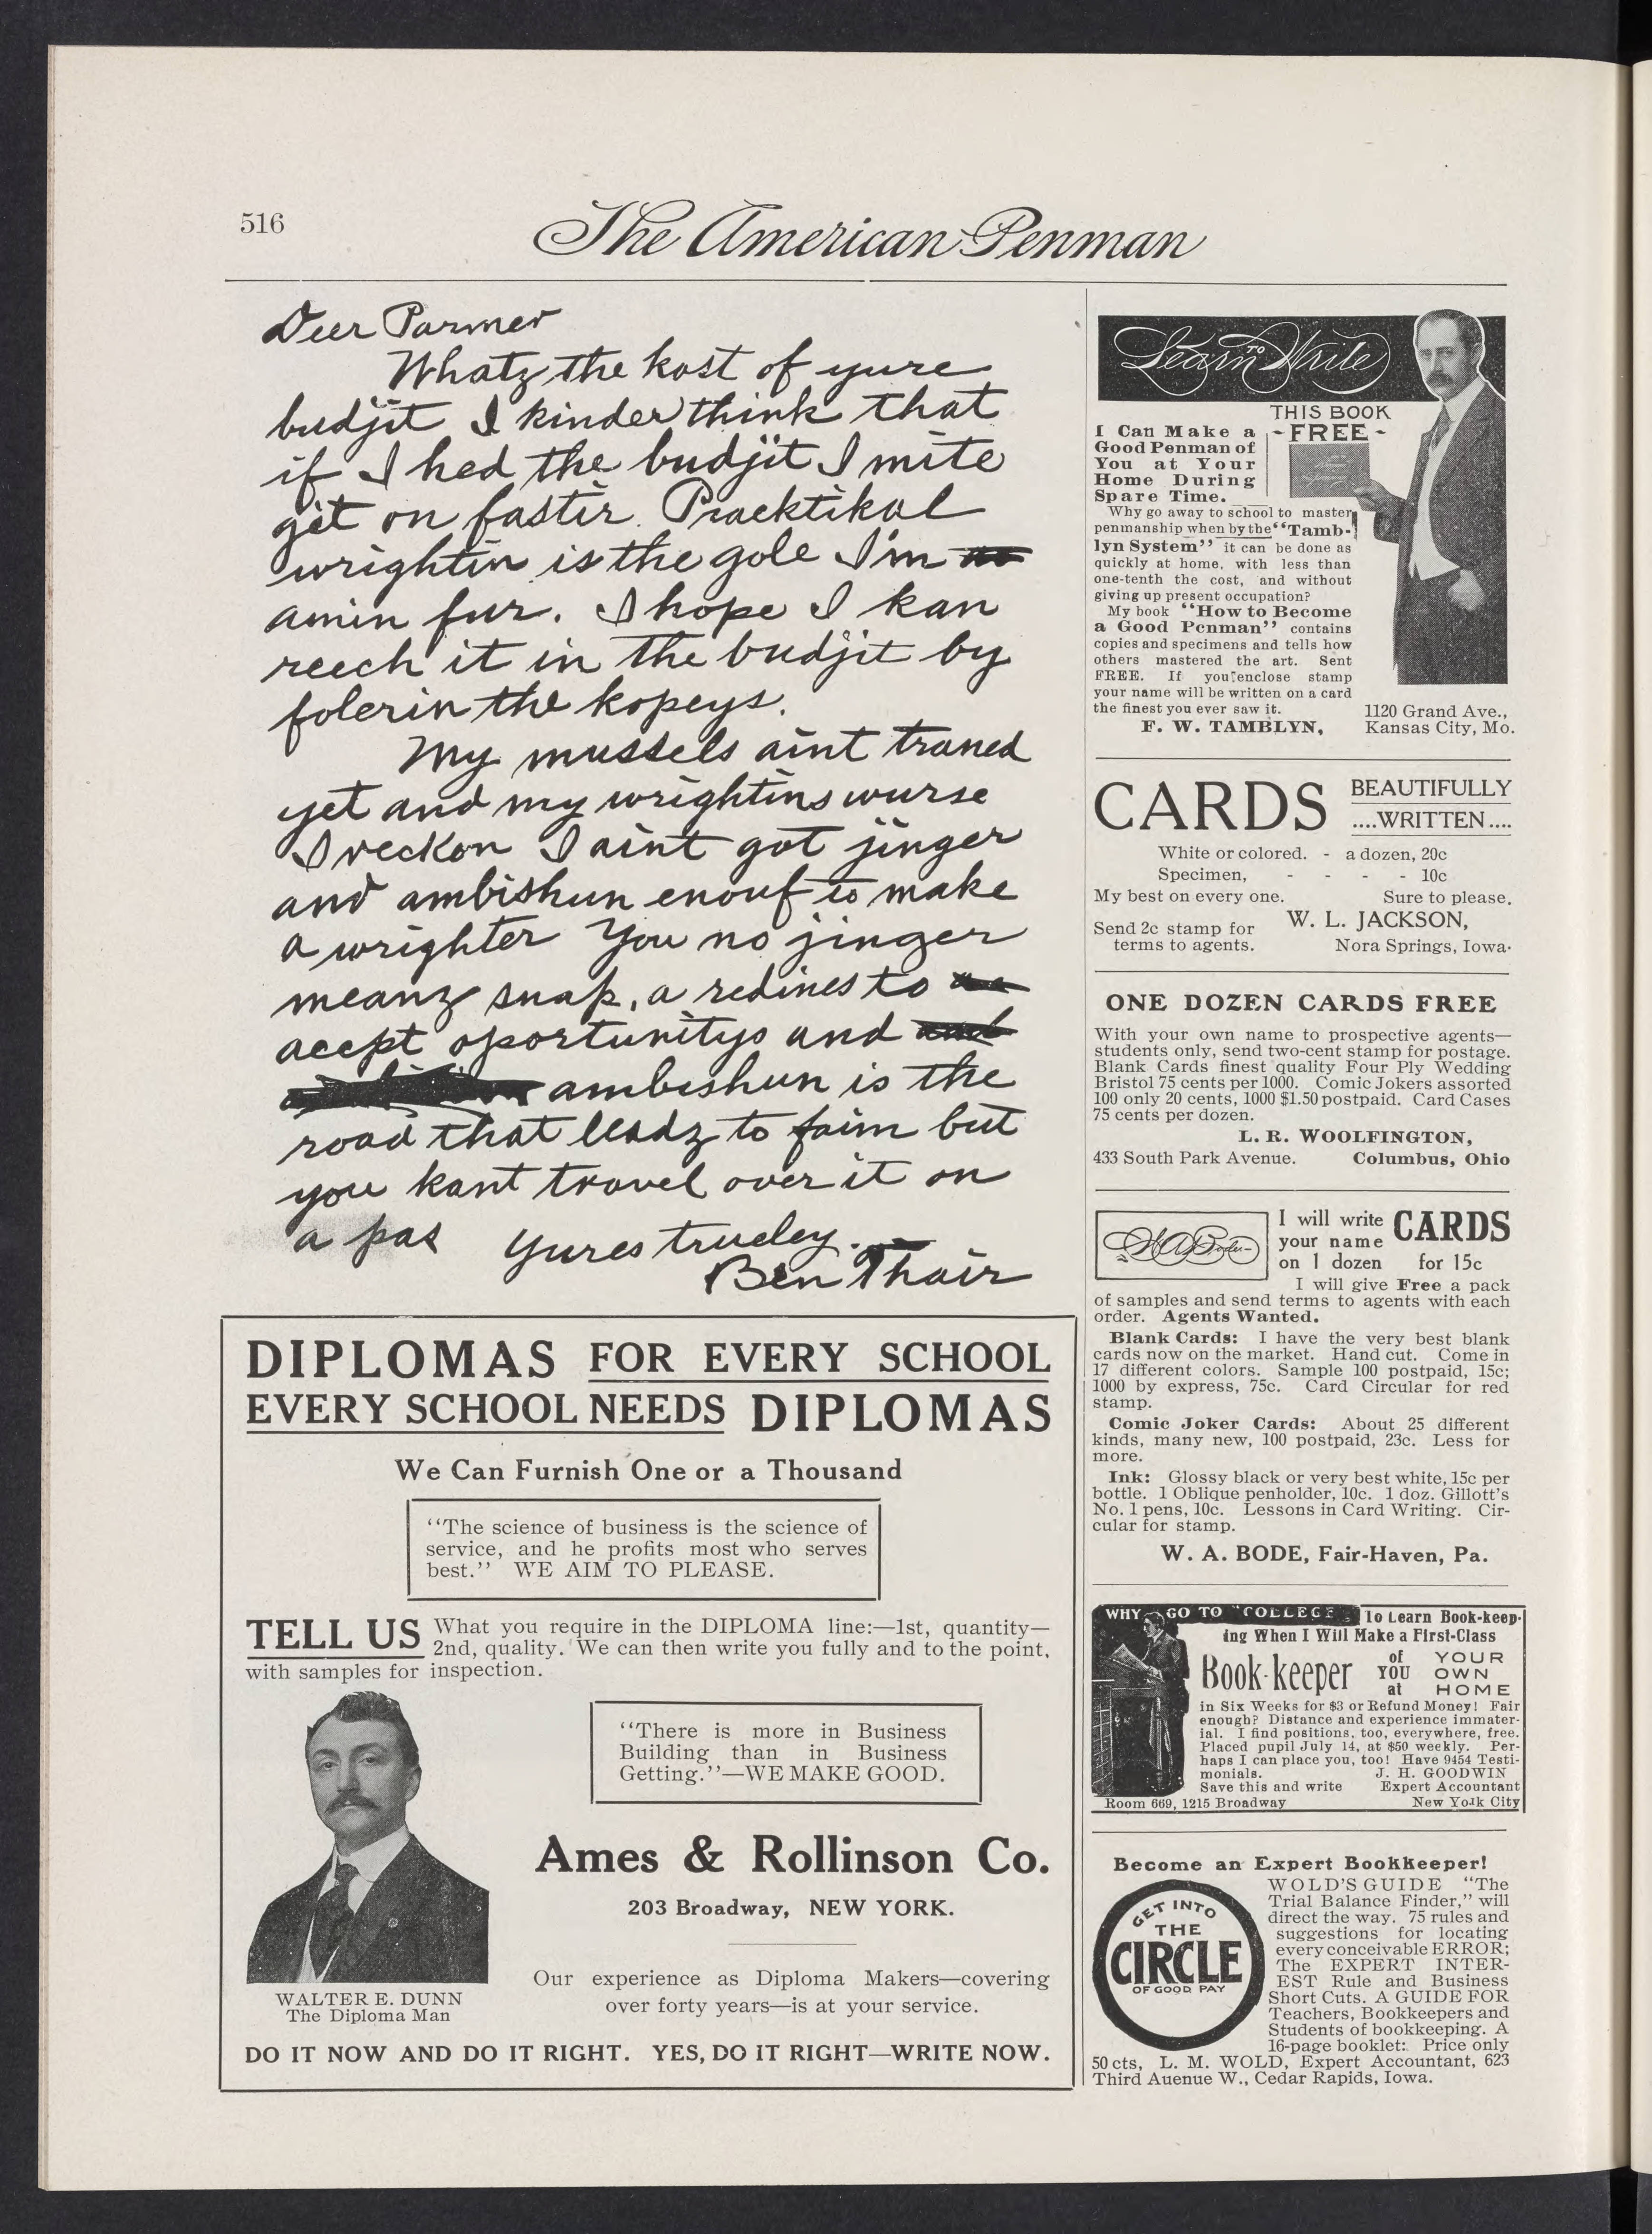 516
The American Penman
Deer Parmer
Whatz the kost of yure
budjit I kinder think that
if I hed the budjit I mite
git on fastir. Pracktikal
wrightin is the gole I'm
amin fur. I hope I kan
reech it in the budjit by
folerin the kopeys.
My mussels aint traned
yet and my wrightins wurse
I reckon I aint got jinger
and ambishun enouf to make
a wrighter You no jinger
meanz snap, a redines to
acept oportunitys and
ambishun is the
road that leadz to faim but
you kant travel over it on
a pas Yures trueley.
Ben Thair
DIPLOMAS FOR EVERY SCHOOL
EVERY SCHOOL NEEDS DIPLOMAS
We Can Furnish One or a Thousand
“The science of business is the science of
service, and he profits most who serves
best.” WE AIM TO PLEASE.
TELL US What you require in the DIPLOMA line:—1st, quantity—
2nd, quality. We can then write you fully and to the point,
with samples for inspection.
“There is more in Business
Building than in Business
Getting.”—WE MAKE GOOD.
Ames & Rollinson Co.
203 Broadway, NEW YORK.
Our experience as Diploma Makers—covering
over forty years—is at your service.
WALTER E. DUNN
The Diploma Man
DO IT NOW AND DO IT RIGHT. YES, DO IT RIGHT—WRITE NOW.
Learn TO Write
THIS BOOK
-FREE-
I Can Make a
Good Penman of
You at Your
Home During
Spare Time.
Why go away to school to master
penmanship when by the “Tamb-
lyn System” it can be done as
quickly at home, with less than
one-tenth the cost, and without
giving up present occupation?
My book “How to Become
a Good Penman” contains
copies and specimens and tells how
others mastered the art. Sent
FREE. If you enclose stamp
your name will be written on a card
the finest you ever saw it.
F. W. TAMBLYN,
1120 Grand Ave.,
Kansas City, Mo.
CARDS BEAUTIFULLY
....WRITTEN....
White or colored. - a dozen, 20c
Specimen, - - - - 10c
My best on every one. Sure to please.
Send 2c stamp for
terms to agents.
W. L. JACKSON,
Nora Springs, Iowa.
ONE DOZEN CARDS FREE
With your own name to prospective agents—
students only, send two-cent stamp for postage.
Blank Cards finest quality Four Ply Wedding
Bristol 75 cents per 1000. Comic Jokers assorted
100 only 20 cents, 1000 $1.50 postpaid. Card Cases
75 cents per dozen.
L. R. WOOLFINGTON,
433 South Park Avenue. Columbus, Ohio
W. A. Bode
I will write
your name
on 1 dozen
CARDS
for 15c
I will give Free a pack
of samples and send terms to agents with each
order. Agents Wanted.
Blank Cards: I have the very best blank
cards now on the market. Hand cut. Come in
17 different colors. Sample 100 postpaid, 15c;
1000 by express, 75c. Card Circular for red
stamp.
Comic Joker Cards: About 25 different
kinds, many new, 100 postpaid, 23c. Less for
more.
Ink: Glossy black or very best white, 15c per
bottle. 1 Oblique penholder, 10c. 1 doz. Gillott's
No. 1 pens, 10c. Lessons in Card Writing. Cir-
cular for stamp.
W. A. BODE, Fair-Haven, Pa.
WHY GO TO “COLLEGE” To Learn Book-keep-
ing When I Will Make a First-Class
Book-keeper of YOU at YOUR OWN HOME
in Six Weeks for $3 or Refund Money! Fair
enough? Distance and experience immater-
ial. I find positions, too, everywhere, free.
Placed pupil July 14, at $50 weekly. Per-
haps I can place you, too! Have 9454 Testi-
monials. J. H. GOODWIN
Save this and write Expert Accountant
Room 669, 1215 Broadway New York City
Become an Expert Bookkeeper!
GET INTO
THE
CIRCLE
OF GOOD PAY
WOLD'S GUIDE “The
Trial Balance Finder,” will
direct the way. 75 rules and
suggestions for locating
every conceivable ERROR;
The EXPERT INTER-
EST Rule and Business
Short Cuts. A GUIDE FOR
Teachers, Bookkeepers and
Students of bookkeeping. A
16-page booklet: Price only
50 cts, L. M. WOLD, Expert Accountant, 623
Third Auenue W., Cedar Rapids, Iowa.